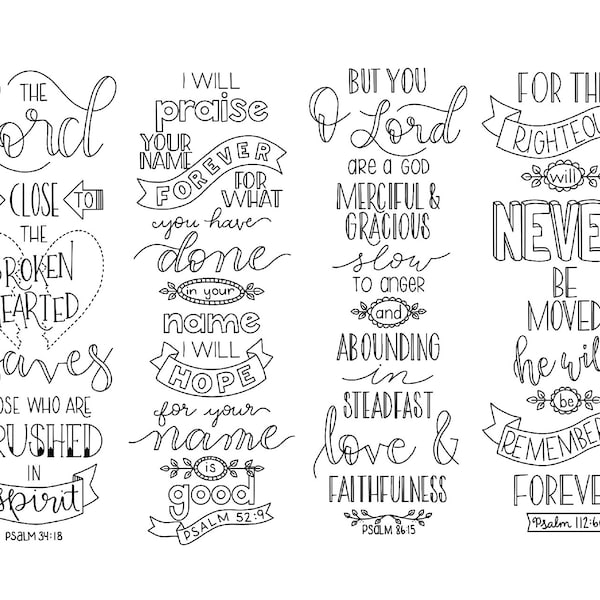 THE
Lord
CLOSE TO
THE
BROKEN
HEARTED
aves
OSE WHO ARE
RUSHED
IN
spirit
PSALM 34:18
I WILL
praise
YOUR
NAME
FOREVER
FOR
WHAT
you have
done
in your
name
I WILL
HOPE
for your
name
is
good
PSALM 52:9
BUT YOU
O Lord
ARE A GOD
MERCIFUL &
GRACIOUS
slow
TO ANGER
and
ABOUNDING
in
STEADFAST
love &
FAITHFULNESS
PSALM 86:15
FOR THE
RIGHTEOU
will
NEVE
BE
MOVED
he will
be
REMEMBER
FOREVE
Psalm 112:6